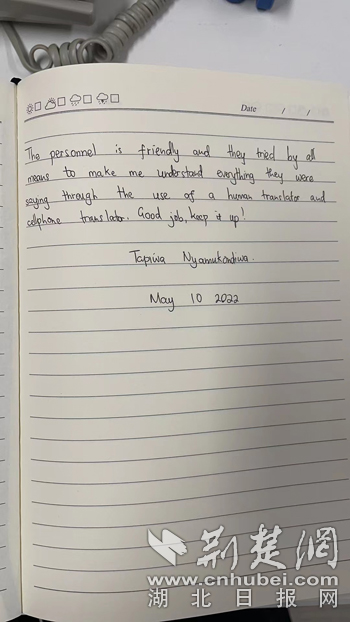 Date / /
The personnel is friendly and they tried by all
means to make me understand everything they were
saying through the use of a human translator and
cellphone translator. Good job, keep it up!
Tapiwa Nyamukondiwa.
May 10 2022
荆楚网
www.cnhubei.com
湖北日报网